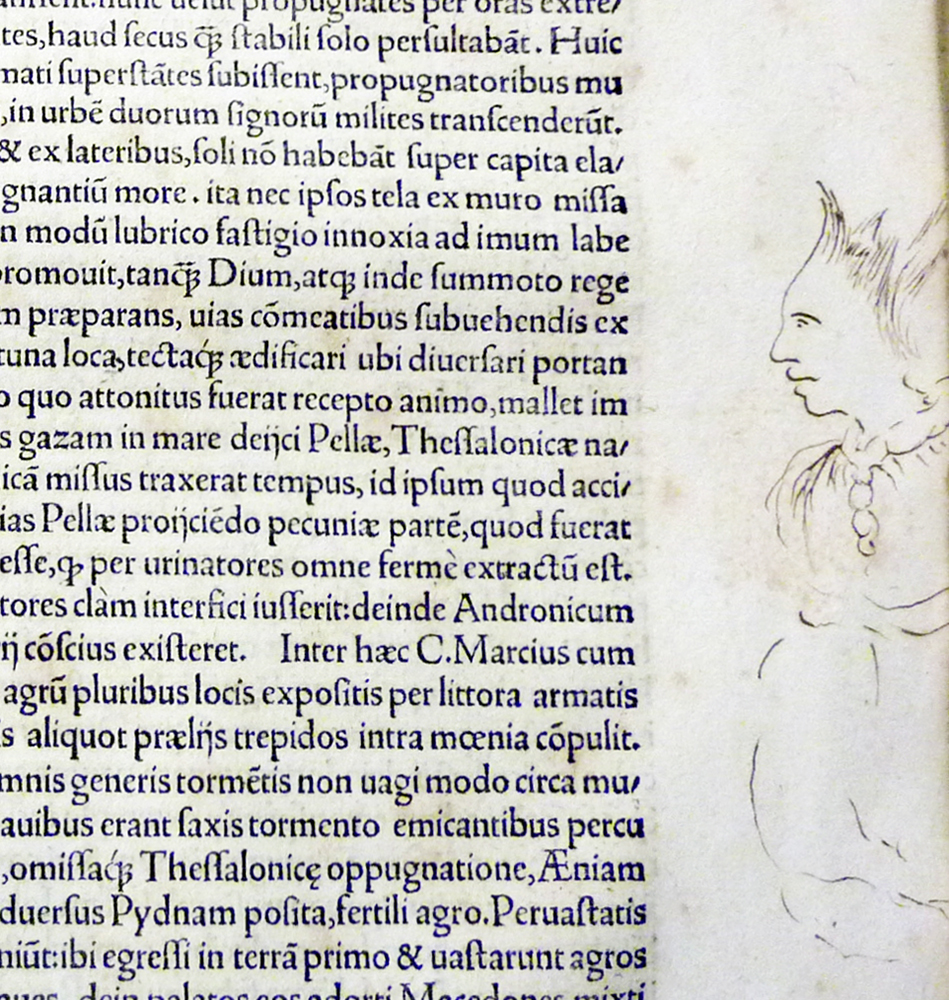 propugnātes per oras extre/
tes,haud ſecus q̄ꝫ ſtabili ſolo perſultabāt. Huic
mati ſuperſtātes ſubiſſent,propugnatoribus mu
,in urbē duorum ſignorū milites tranſcenderūt.
& ex lateribus,ſoli nō habebāt ſuper capita ela/
gnantiū more. ita nec ipſos tela ex muro miſſa
n modū lubrico faſtigio innoxia ad imum labe
romouit,tanq̄ꝫ Dium,atqꝫ inde ſummoto rege
m præparans, uias cōmeatibus ſubuehendis ex
tuna loca,tectaqꝫ ædificari ubi diuerſari portan
o quo attonitus fuerat recepto animo,mallet im
s gazam in mare deijci Pellæ,Theſſalonicæ na/
icā miſſus traxerat tempus, id ipſum quod acci/
ias Pellæ proijciēdo pecuniæ partē,quod fuerat
eſſe,ꝙ per urinatores omne fermè extractū eſt.
tores clàm interfici iuſſerit:deinde Andronicum
rij cōſcius exiſteret. Inter hæc C.Marcius cum
agrū pluribus locis expoſitis per littora armatis
s aliquot prælijs trepidos intra mœnia cōpulit.
mnis generis tormētis non uagi modo circa mu/
auibus erant ſaxis tormento emicantibus percu
,omiſſaqꝫ Theſſalonicę oppugnatione,Æniam
duerſus Pydnam poſita,fertili agro.Peruaſtatis
niūt:ibi egreſſi in terrā primo & uaſtarunt agros
dein palatos eos adorti Macedones mixti